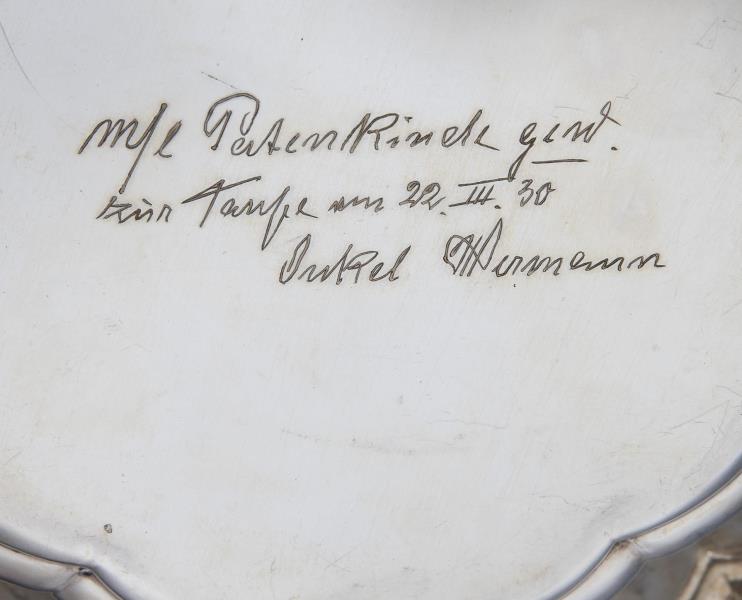 Patenkinde gew.
zur Taufe am 22. III. 30
Onkel Hermann